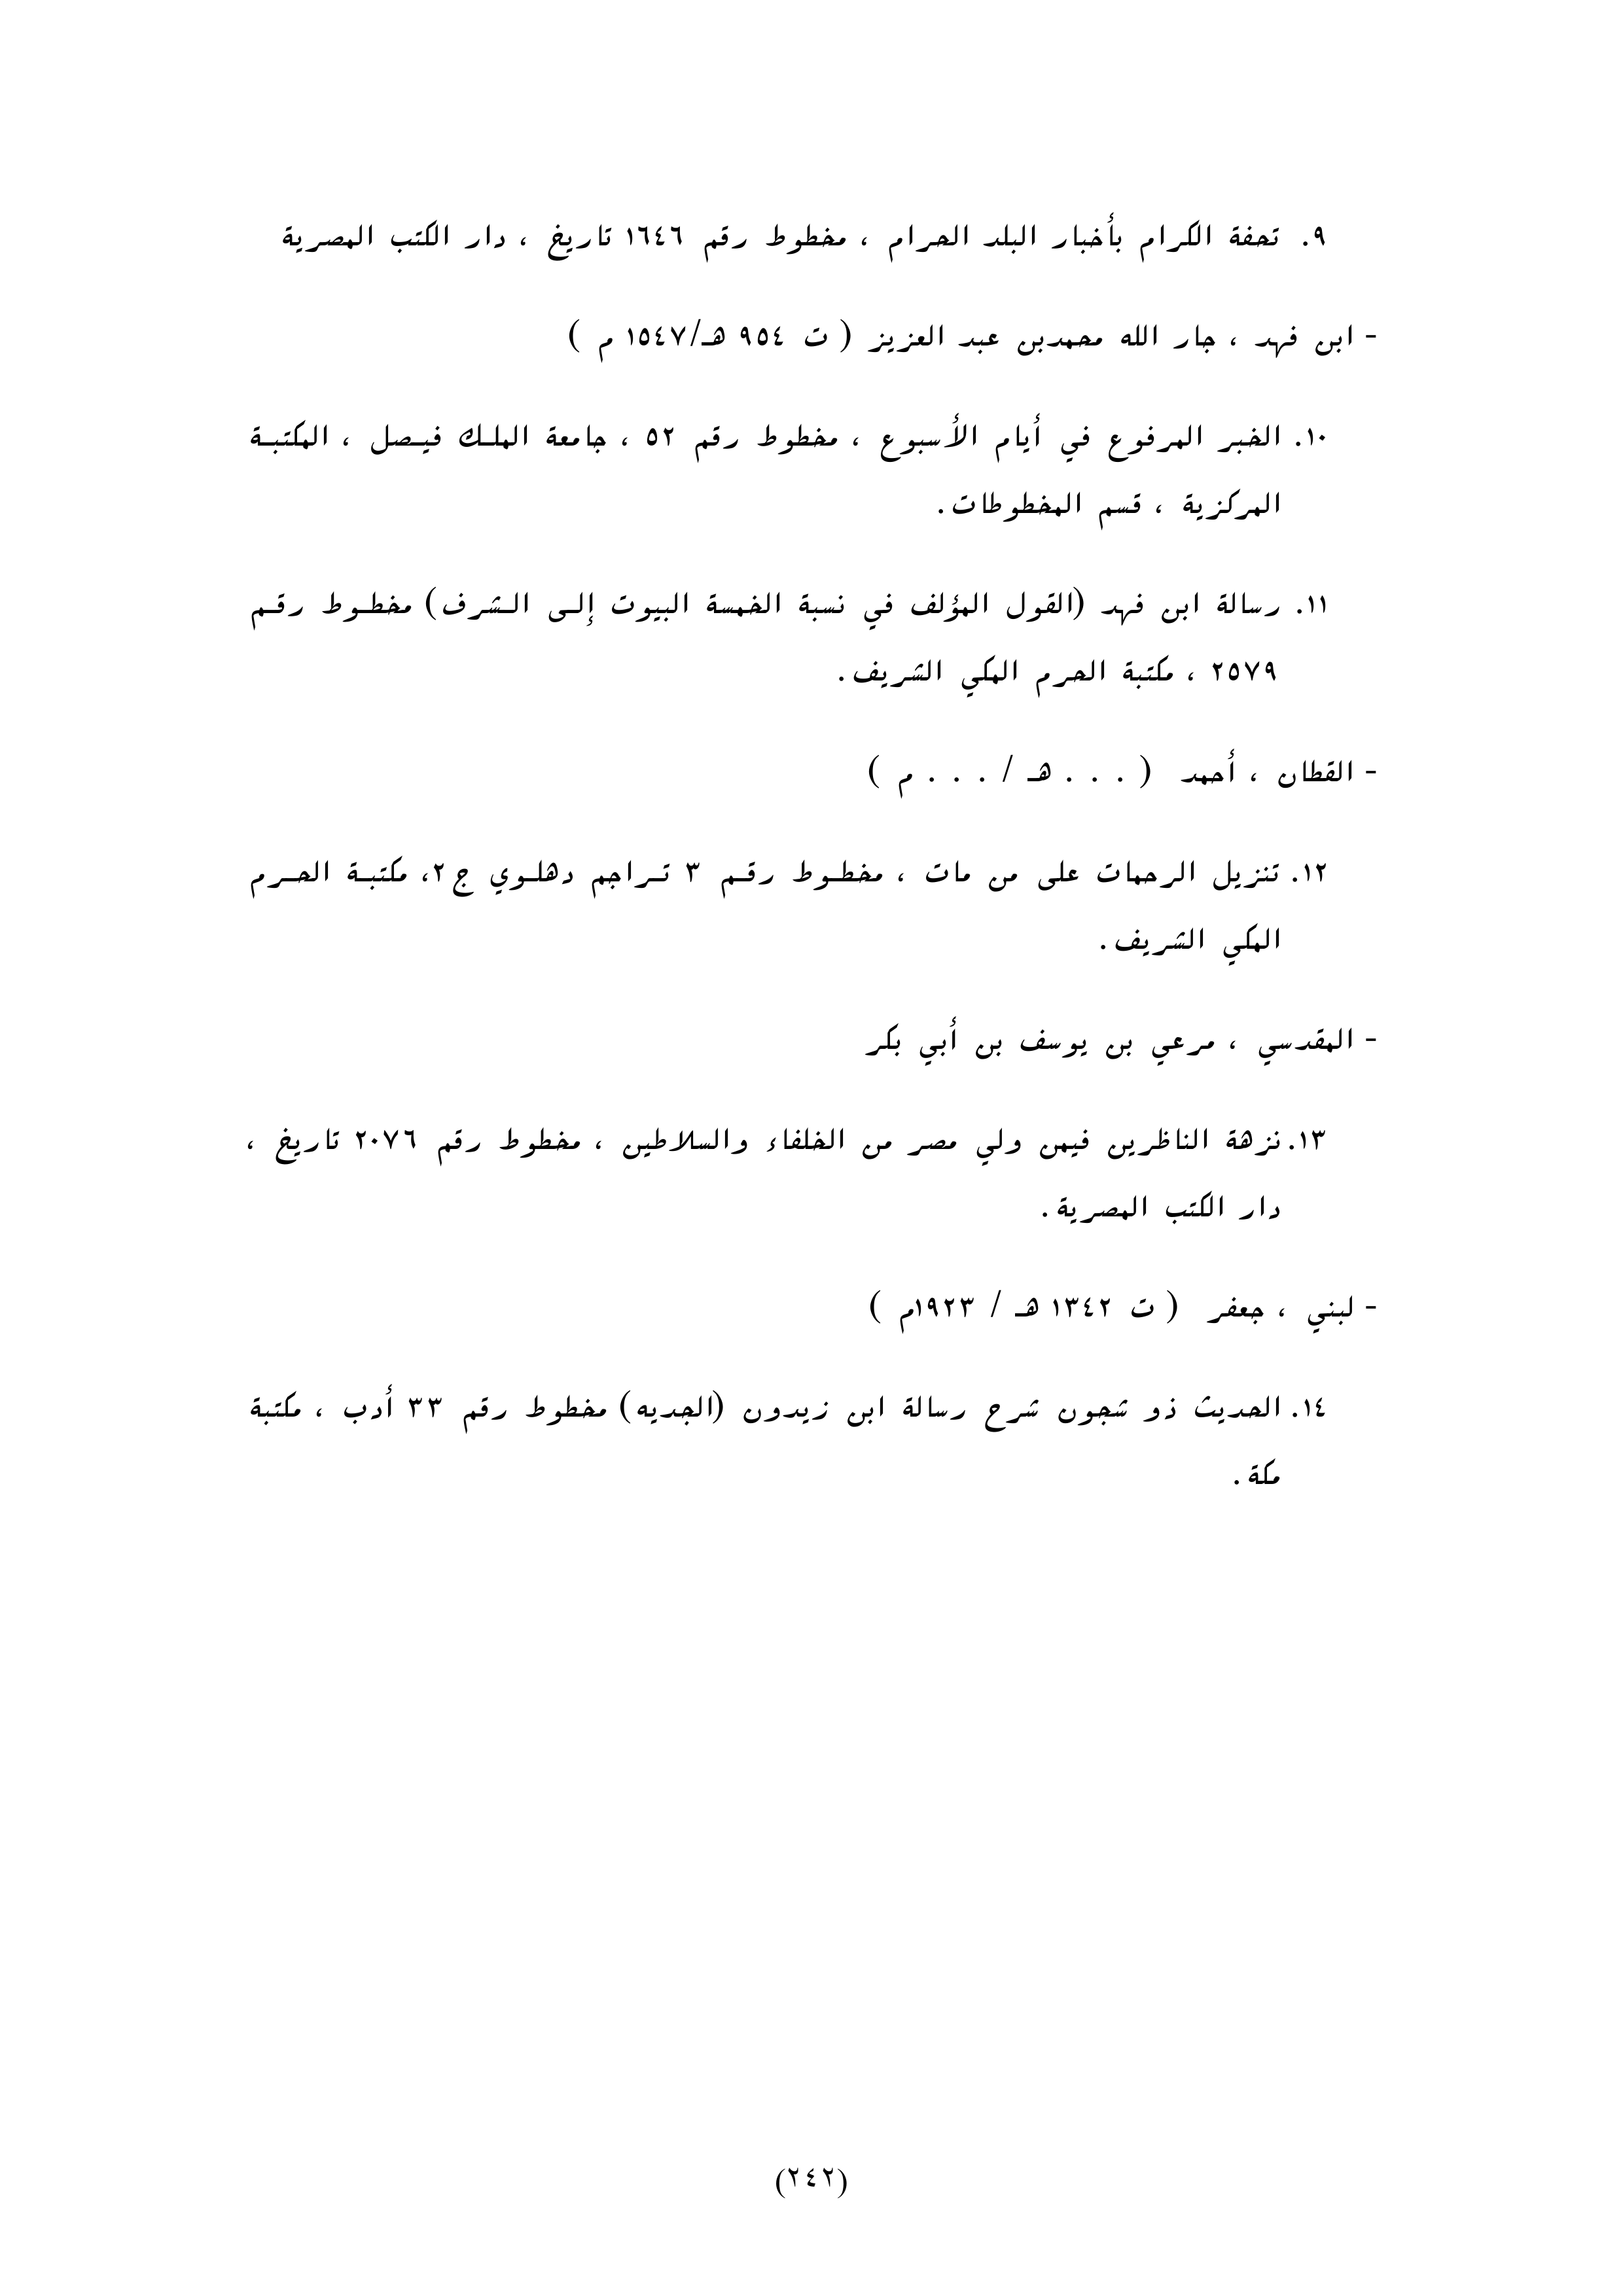 ٩. تحفة الكرام بأخبار البلد الحرام ، مخطوط رقم ١٦٤٦ تاريخ ، دار الكتب المصرية
- ابن فهد ، جار الله محمدبن عبد العزيز ( ت ٩٥٤ هـ/١٥٤٧ م )
١٠. الخبر المرفوع في أيام الأسبوع ، مخطوط رقم ٥٢ ، جامعة الملـك فيـصل ، المكتبـة
المركزية ، قسم المخطوطات.
١١. رسالة ابن فهد (القول المؤلف في نسبة الخمسة البيوت إلـى الـشرف) مخطـوط رقـم
٢٥٧٩ ، مكتبة الحرم المكي الشريف.
- القطان ، أحمد ( . . . هـ / . . . م )
١٢. تنزيل الرحمات على من مات ، مخطـوط رقـم ٣ تـراجم دهلـوي ج٢، مكتبـة الحـرم
المكي الشريف.
- المقدسي ، مرعي بن يوسف بن أبي بكر
١٣. نزهة الناظرين فيمن ولي مصر من الخلفاء والسلاطين ، مخطوط رقم ٢٠٧٦ تاريخ ،
دار الكتب المصرية.
- لبني ، جعفر ( ت ١٣٤٢ هـ / ١٩٢٣م )
١٤. الحديث ذو شجون شرح رسالة ابن زيدون (الجديه) مخطوط رقم ٣٣ أدب ، مكتبة
مكة.
(٢٤٢)